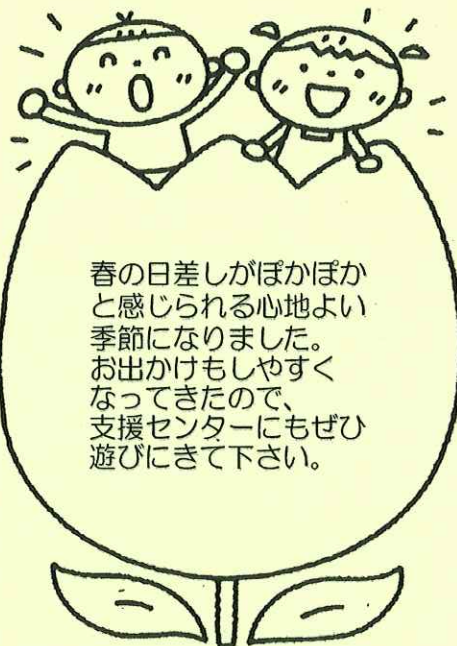 春の日差しがぽかぽか
と感じられる心地よい
季節になりました。
お出かけもしやすく
なってきたので、
支援センターにもぜひ
遊びにきて下さい。